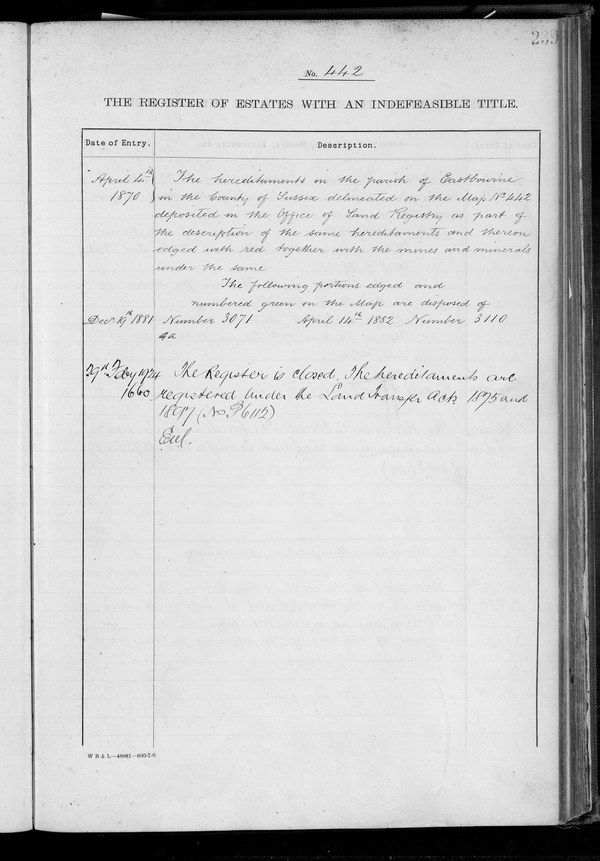 No. 442
THE REGISTER OF ESTATES WITH AN INDEFEASIBLE TITLE.
Date of Entry.
Description.
April 4th
1870
The hereditaments in the parish of Eastbourne
in the County of Sussex delineated on the Map No 442
deposited in the Office of Land Registry as part of
the description of the same hereditaments and thereon
edged with red together with the mines and minerals
under the same
The following portions edged and
numbered green on the Map are disposed of
Decr 19th 1881 Number 3071 April 14th 1882 Number 3110
29th Feby 1924 The Register is closed. The hereditaments are
1660 registered under the Land Transfer Acts 1875 and
1897 (No P6115)
W B & L—48983—800-7-6